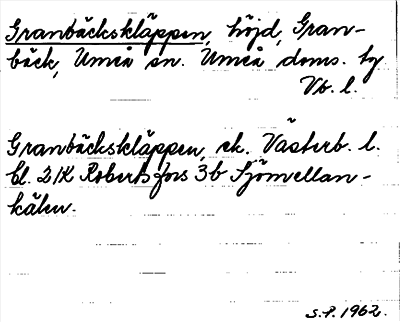 Granbäckskläppen, höjd, Gran-
bäck, Umeå sn. Umeå doms. tg
Vb. l.
Granbäckskläppen, ek. Västerb. l.
bl. 21K Robertsfors 3b Sjömellan-
kälen.
S.P. 1962.